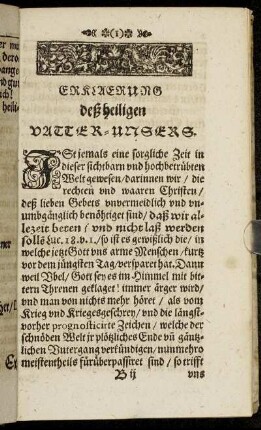 (1)
ERKLAERUNG
deß heiligen
VATTER-UNSERS.
ISt jemals eine sorgliche Zeit in
dieser sichtbarn und hochbetrübten
Welt gewesen/ darinnen wir / die
rechten und waaren Christen/
deß lieben Gebets unvermeidlich und vn-
umbgänglich benöhtiget sind/ daß wir al-
lezeit beten / und nicht laß werden
sollē Luc. 18. v. 1./ so ist es gewißlich die/ in
welche jetzt Gott vns arme Menschen/ kurtz
vor dem jüngsten Tag/ versparet hat. Dann
weil Vbel/ Gott sey es im Himmel mit bit-
tern Threnen geklaget! immer ärger wird/
vnd man von nichts mehr höret/ als vom
Krieg vnd Kriegesgeschrey/ und die längst-
vorher prognosticirte Zeichen/ welche der
schnöden Welt jr plötzliches Ende vñ gäntz-
lichen Vntergang verkündigen/ nunmehro
meistentheils fürüberpassiret sind/ so trifft
B ij
vns